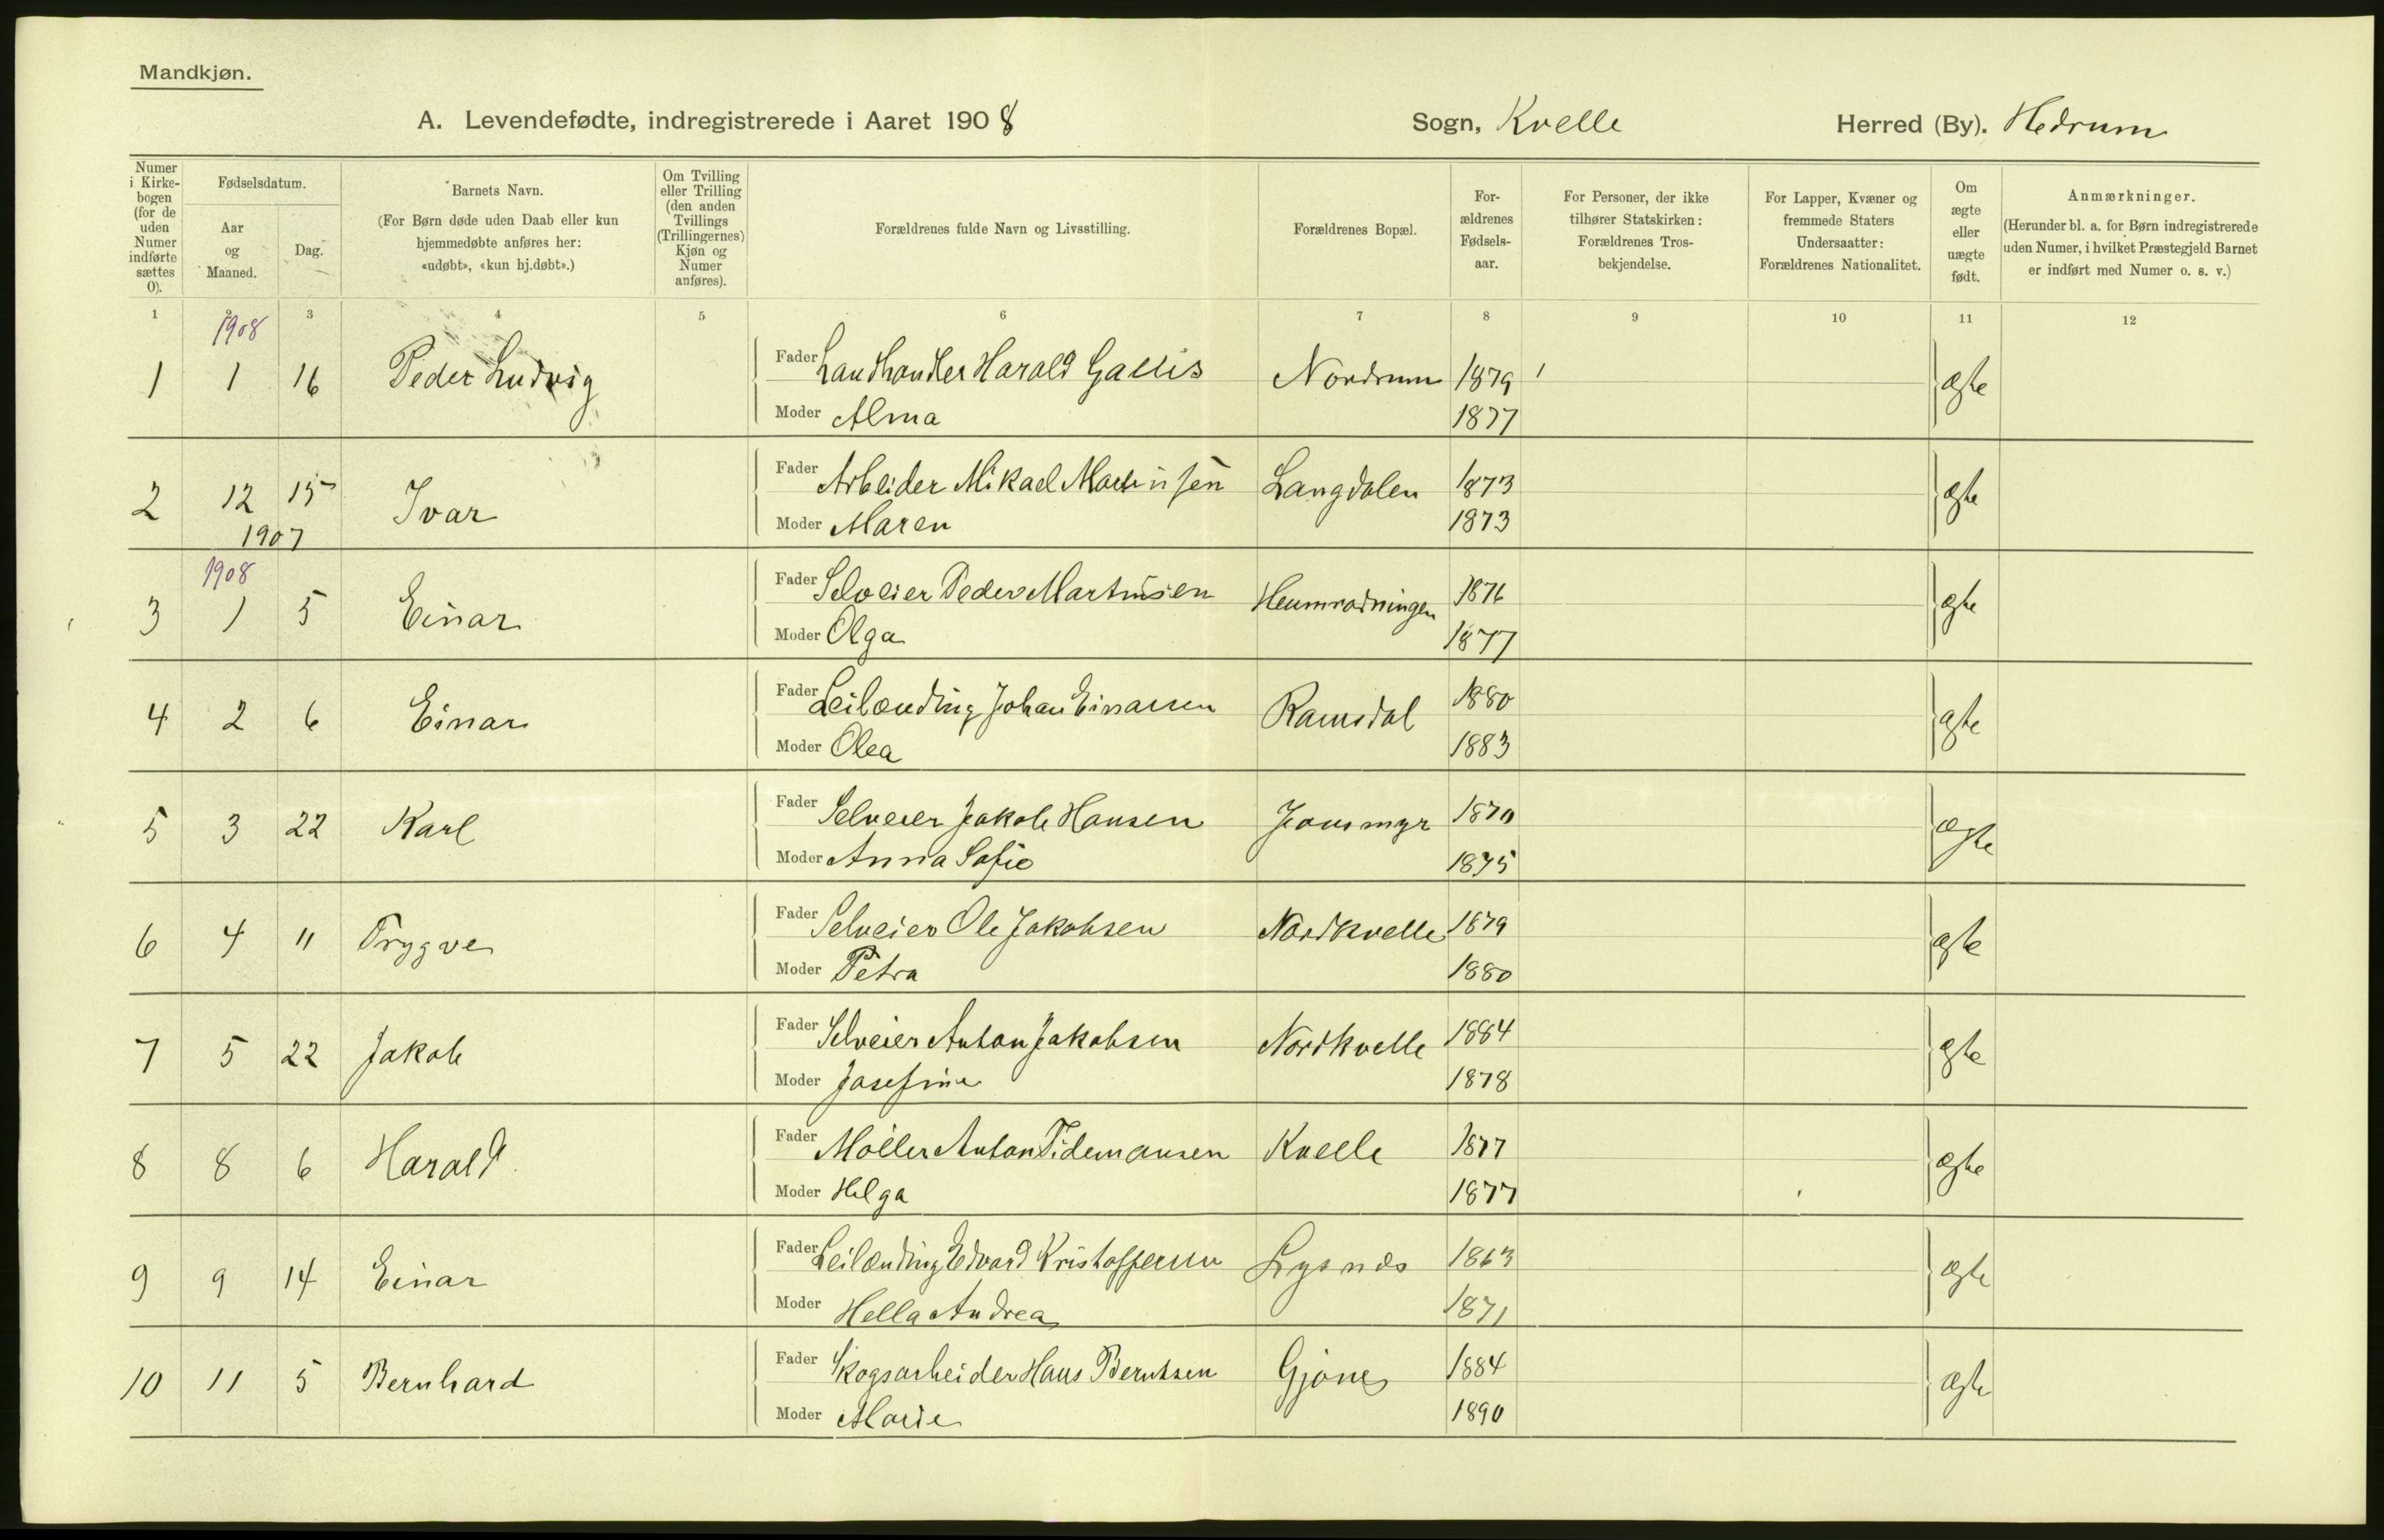 Mandkjøn.
A. Levendefødte, indregistrerede i Aaret 1908 Sogn, Kvelle Herred (By). Hedrum
Numer i Kirkebogen (for de uden Numer indførte sættes 0).
Fødselsdatum.
Aar og Maaned.
Dag.
Barnets Navn.
(For Børn døde uden Daab eller kun
hjemmedøbte anføres her:
«udøbt», «kun hj.døbt».)
Om Tvilling
eller Trilling
(den anden
Tvillings
(Trillingernes)
Kjøn og
Numer
anføres).
Forældrenes fulde Navn og Livsstilling.
Forældrenes Bopæl.
For-
ældrenes
Fødsels-
aar.
For Personer, der ikke
tilhører Statskirken:
Forældrenes Tros-
bekjendelse.
For Lapper, Kvæner og
fremmede Staters
Undersaatter:
Forældrenes Nationalitet.
Om
ægte
eller
uægte
født.
Anmærkninger.
(Herunder bl. a. for Børn indregistrerede
uden Numer, i hvilket Præstegjeld Barnet
er indført med Numer o. s. v.)
1 2 3 4 5 6 7 8 9 10 11 12
1908
1 1 16 Peder Ludvig Fader Landhandler Harald Gallis Nordrum 1879 ægte
Moder Alma 1877
2 12 15 Ivar Fader Arbeider Mikael Martinsen Langdalen 1873 ægte
1907 Moder Maren 1873
1908
3 1 5 Einar Fader Selveier Peder Martinsen Heumrødningen 1876 ægte
Moder Olga 1877
4 2 6 Einar Fader Leilænding Johan Einarsen Ramsdal 1880 ægte
Moder Olea 1883
5 3 22 Karl Fader Selveier Jakob Hansen 1870 ægte
Moder Anna Sofie 1875
6 4 11 Trygve Fader Selveier Ole Jakobsen Nordkvelle 1879 ægte
Moder Petra 1880
7 5 22 Jakob Fader Selveier Anton Jakobsen Nordkvelle 1884 ægte
Moder Josefine 1878
8 8 6 Harald Fader Møller Anton Tidemansen Kvelle 1877 ægte
Moder Helga 1877
9 9 14 Einar Fader Leilænding Edvard Kristoffersen Lysnes 1863 ægte
Moder Hella Andrea 1871
10 11 5 Bernhard Fader Skogsarbeider Hans Berntsen Gjone 1884 ægte
Moder Marie 1890